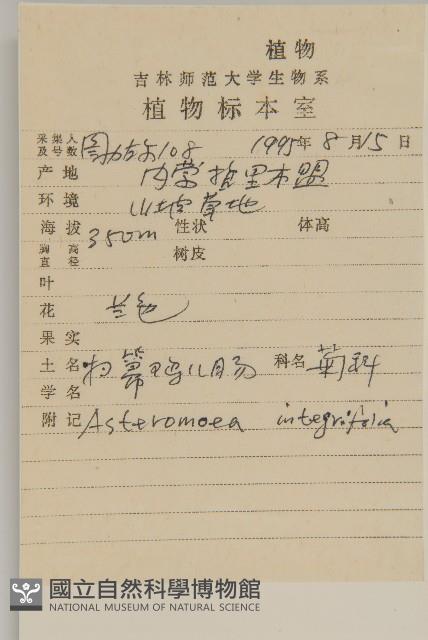 植物
吉林师范大学生物系
植物标本室
采集人及号数 图力古尔108 1995年8月15日
产地 内蒙哲里木盟
环境 山坡草地
海拔 350m 性状 体高
胸高直径 树皮
叶
花 兰色
果实
土名 全叶鸡儿肠 科名 菊科
学名
附记 Asteromoea integrifolia
國立自然科學博物館
NATIONAL MUSEUM OF NATURAL SCIENCE